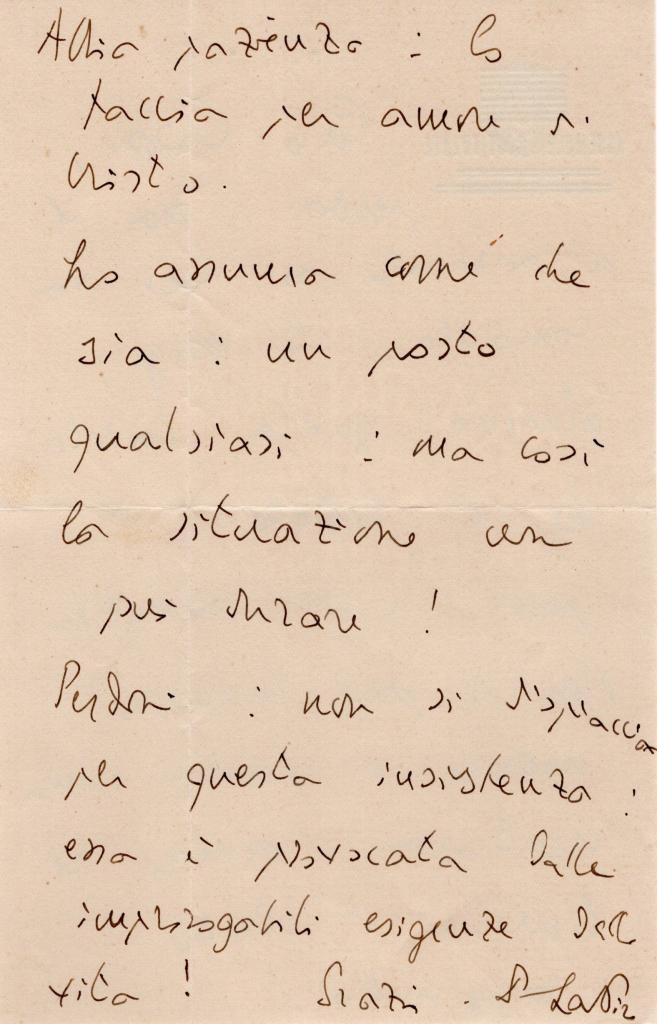 Abbia pazienza : lo
faccia per amore di
Cristo.
Lo assuma come che
sia : un posto
qualsiasi : ma così
la situazione non
può durare !
Perdoni : non si dispiaccia
per questa insistenza :
essa è provocata dalle
improrogabili esigenze della
vita ! Grazie . La Pira